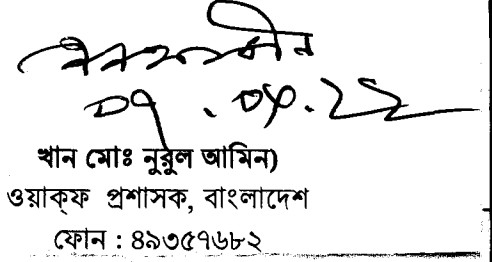 ০৭.০৮.২২
খান মোঃ নুরুল আমিন)
ওয়াক্ফ প্রশাসক, বাংলাদেশ
ফোন : ৪৯৩৫৭৬৮২